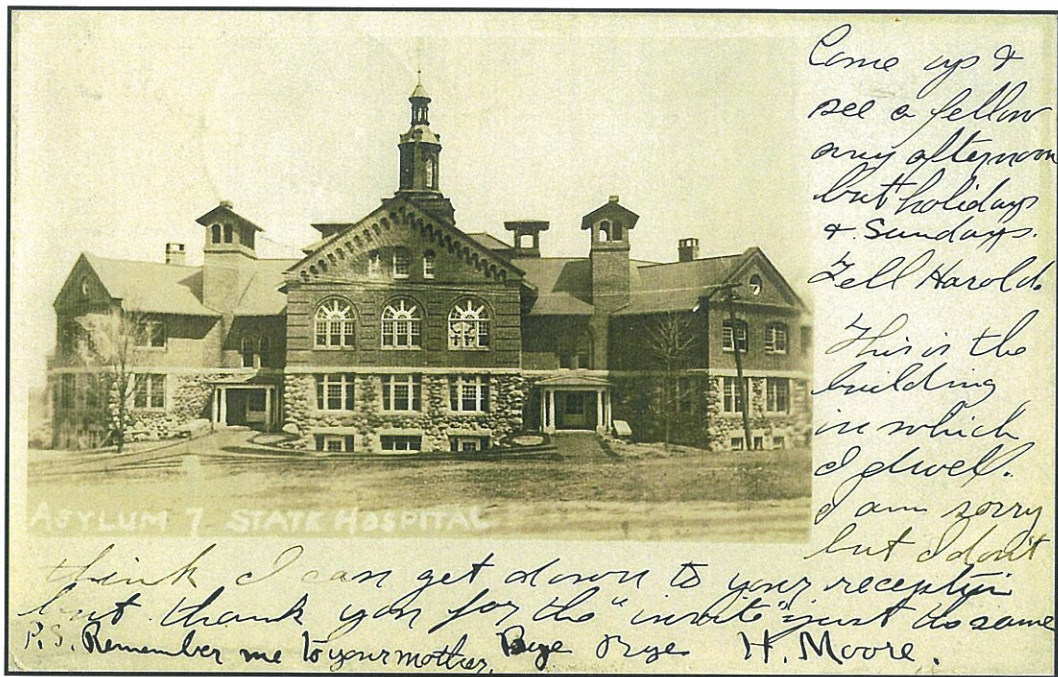 Come up &
see a fellow
any afternoon
but holidays
& Sundays.
Tell Harold.
This is the
building
in which
I dwell.
I am sorry
but I don't
think I can get down to your reception
but thank you for the "invite" just the same
P.S. Remember me to your mother. Bye Bye H. Moore.
ASYLUM 7 STATE HOSPITAL